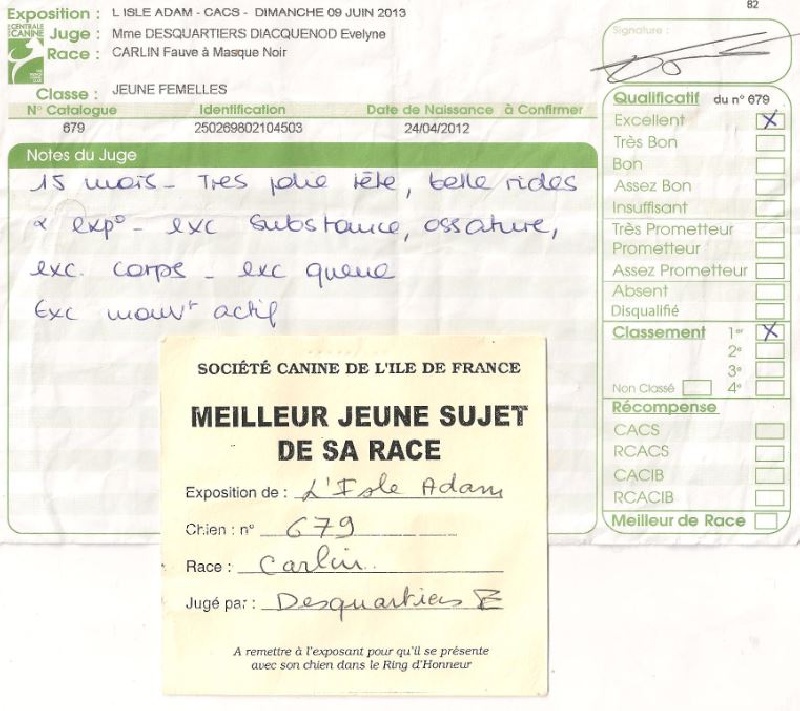 82
Exposition : L ISLE ADAM - CACS - DIMANCHE 09 JUIN 2013
CENTRALE CANINE
Juge : Mme DESQUARTIERS DIACQUENOD Evelyne
Race : CARLIN Fauve à Masque Noir
Classe : JEUNE FEMELLES
N° Catalogue Identification Date de Naissance à Confirmer
679 250269802104503 24/04/2012
Notes du Juge
15 mois - Tres jolie tête, belle rides
& exp° - exc substance, ossature,
exc. corps - exc queue
Exc mouvt actif
Signature :
Qualificatif du n° 679
Excellent X
Très Bon
Bon
Assez Bon
Insuffisant
Très Prometteur
Prometteur
Assez Prometteur
Absent
Disqualifié
Classement 1er X
2e
3e
Non Classé 4e
Récompense
CACS
RCACS
CACIB
RCACIB
Meilleur de Race
SOCIÉTÉ CANINE DE L'ILE DE FRANCE
MEILLEUR JEUNE SUJET
DE SA RACE
Exposition de : L'Isle Adam
Chien : n° 679
Race : Carlin
Jugé par : Desquartiers E
A remettre à l'exposant pour qu'il se présente
avec son chien dans le Ring d'Honneur